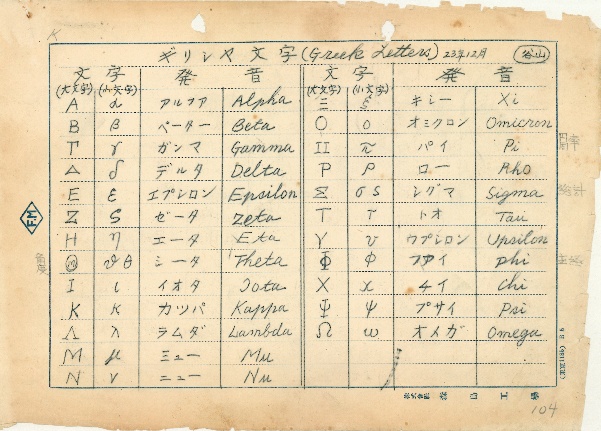 ギリシャ文字(Greek Letters) 23年12月 谷山
文字 発音 文字 発音
(大文字) (小文字) (大文字) (小文字)
Α α アルファ Alpha Ξ ξ キシー Xi
Β β ベーター Beta Ο ο オミクロン Omicron
Γ γ ガンマ Gamma Π π パイ Pi
Δ δ デルタ Delta Ρ ρ ロー Rho
Ε ε エプシロン Epsilon Σ σ s シグマ Sigma
Ζ ζ ゼータ Zeta Τ τ トオ Tau
Η η エータ Eta Υ υ ウプシロン Upsilon
Θ ϑ θ シータ Theta Φ φ ファイ phi
Ι ι イオタ Iota Χ χ チイ Chi
Κ κ カッパ Kappa Ψ ψ プサイ Psi
Λ λ ラムダ Lambda Ω ω オメガ Omega
Μ μ ミュー Mu
Ν ν ニュー Nu
FM
角度
104